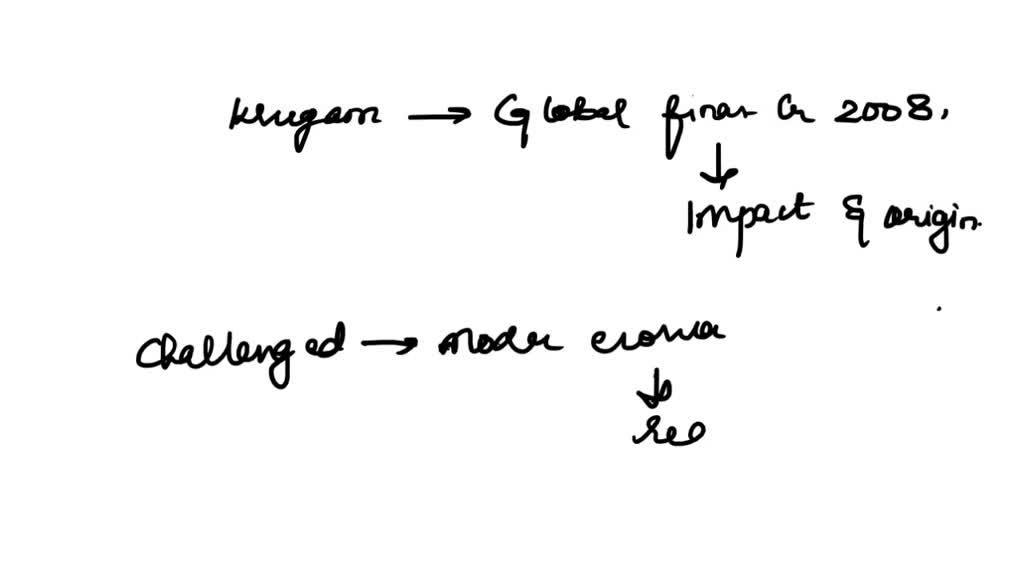 krugam → Global finan Cr 2008.
↓
Impact & origin.
Challenged → moder econo
↓
reo